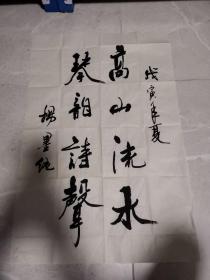 戊寅年夏
高山流水
琴韻詩聲
楊墨純